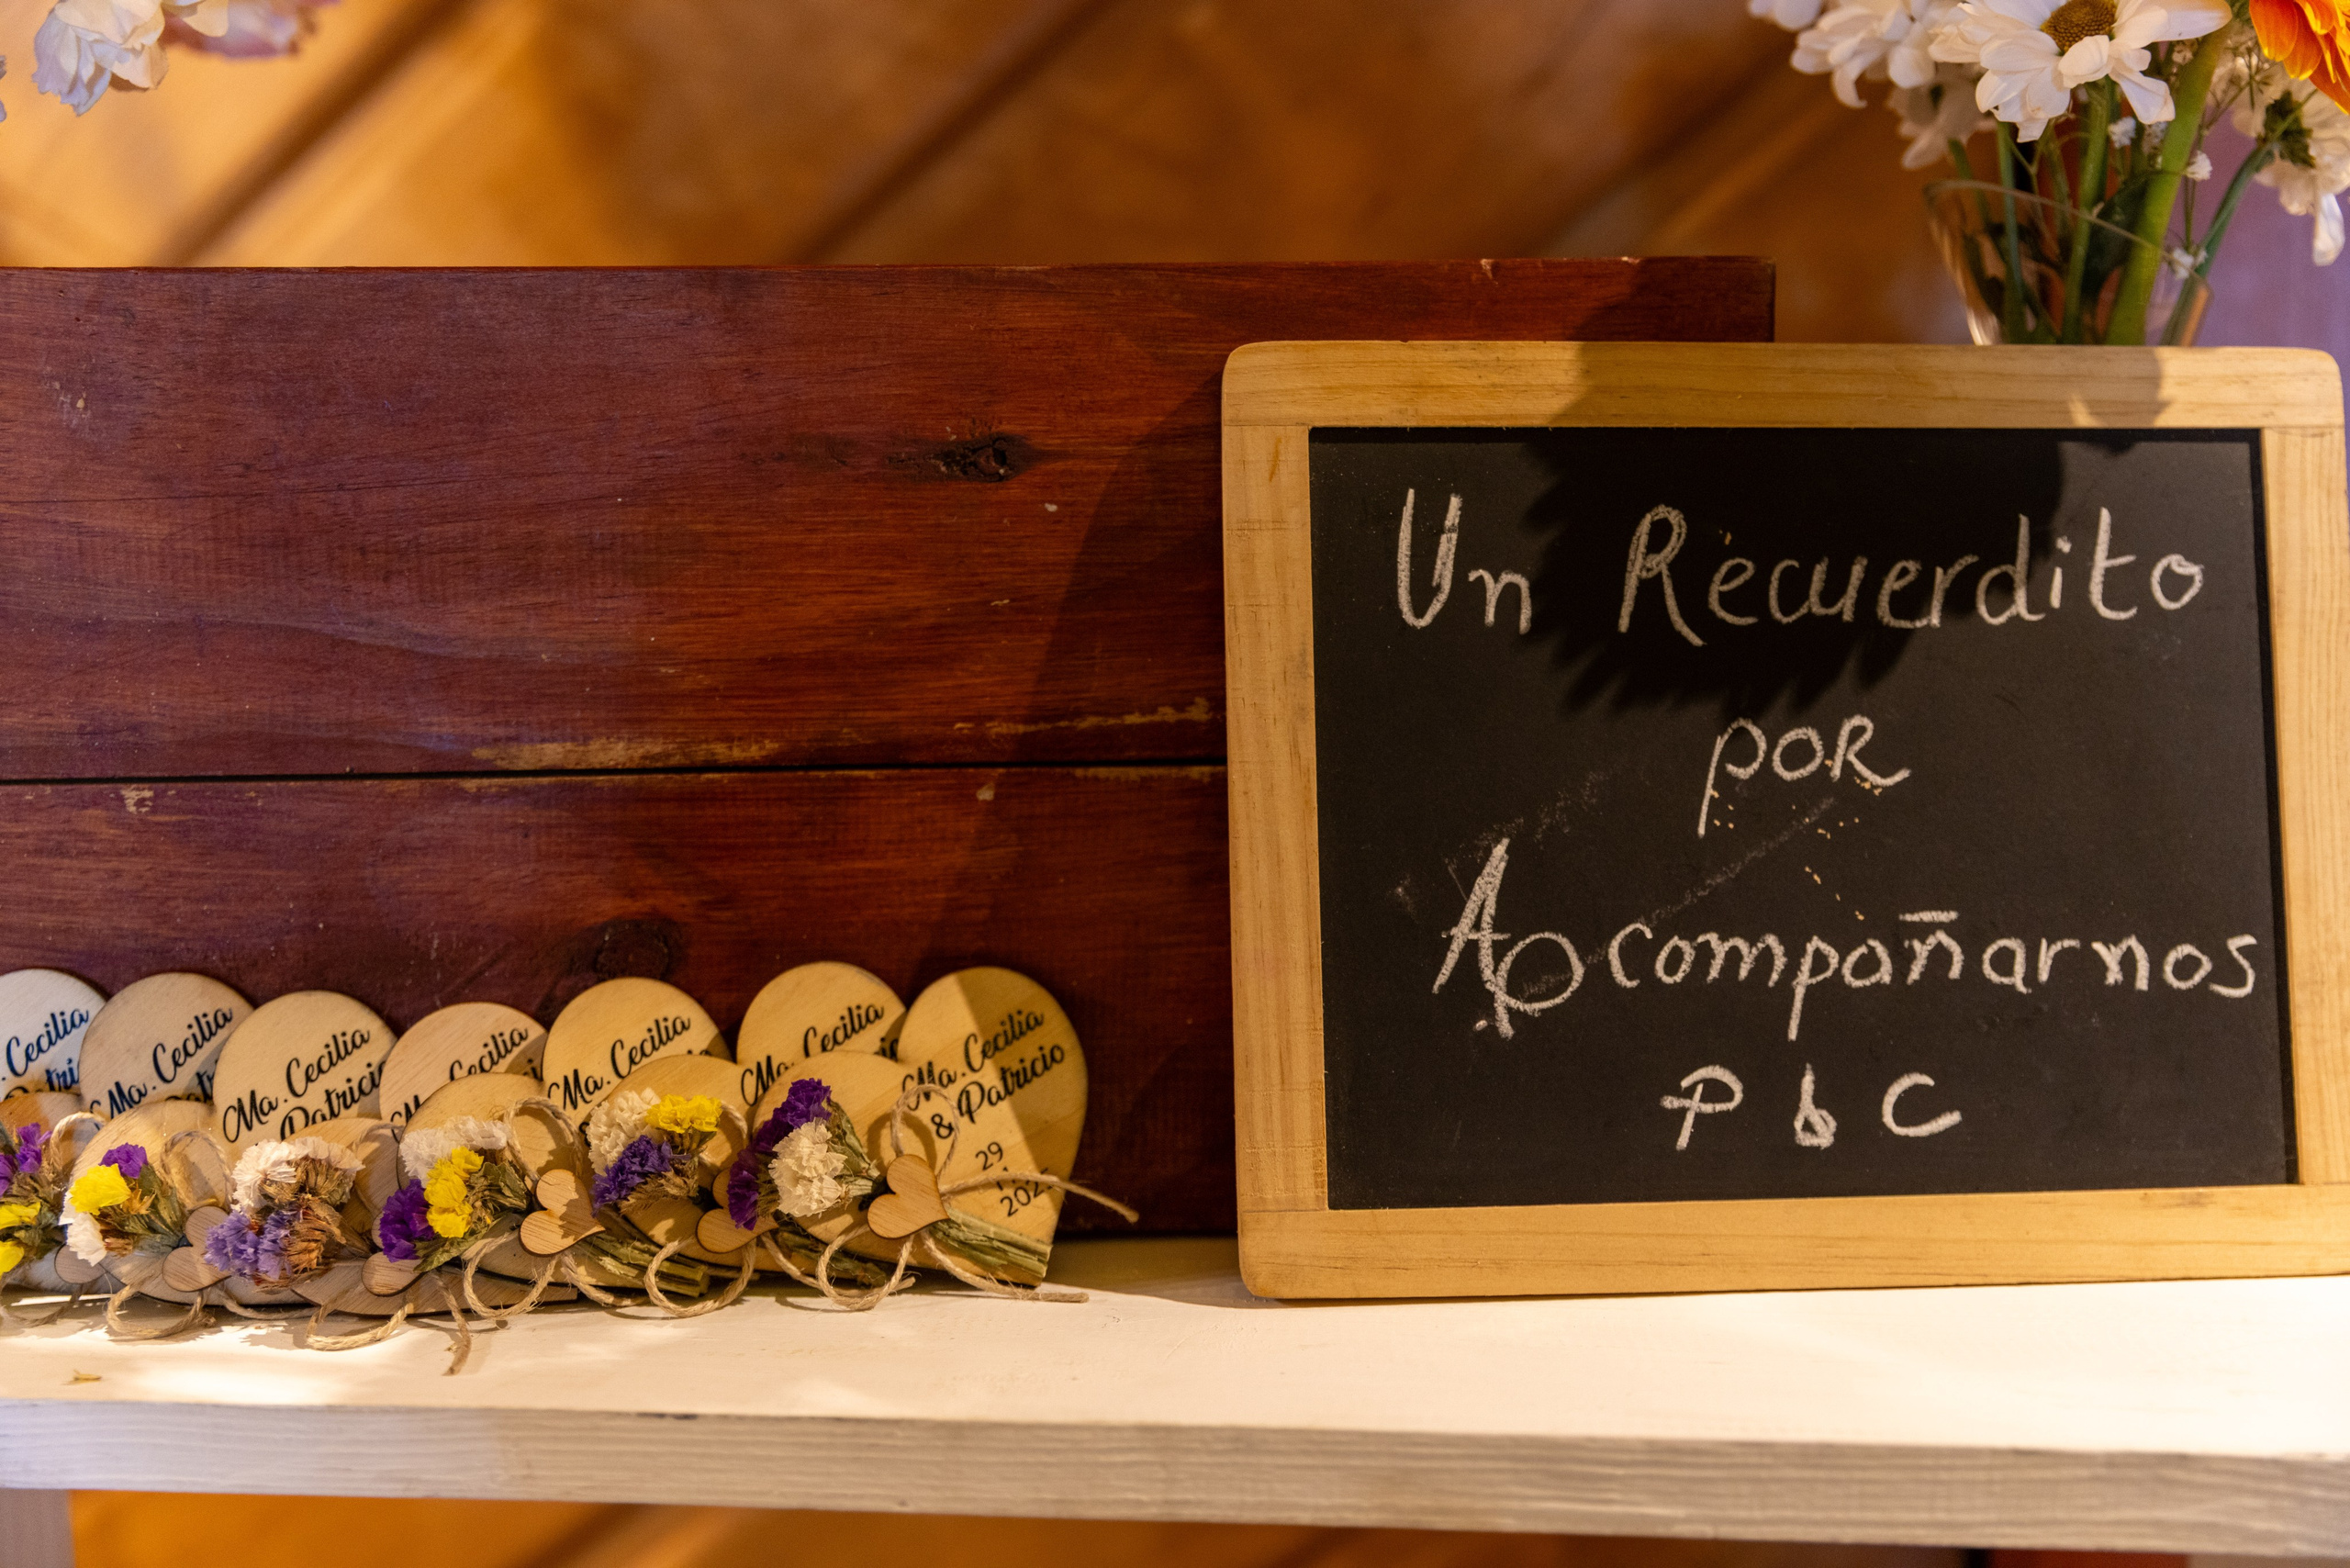 . Cecilia
Patri
Ma. Cecilia
Patr
Ma. Cecilia
Patricio
Ma. Cecilia
Ma. Cecilia
&
Ma. Cecilia
Ma. Cecilia
& Patricio
29
Un Recuerdito
por
Acompañarnos
P b C